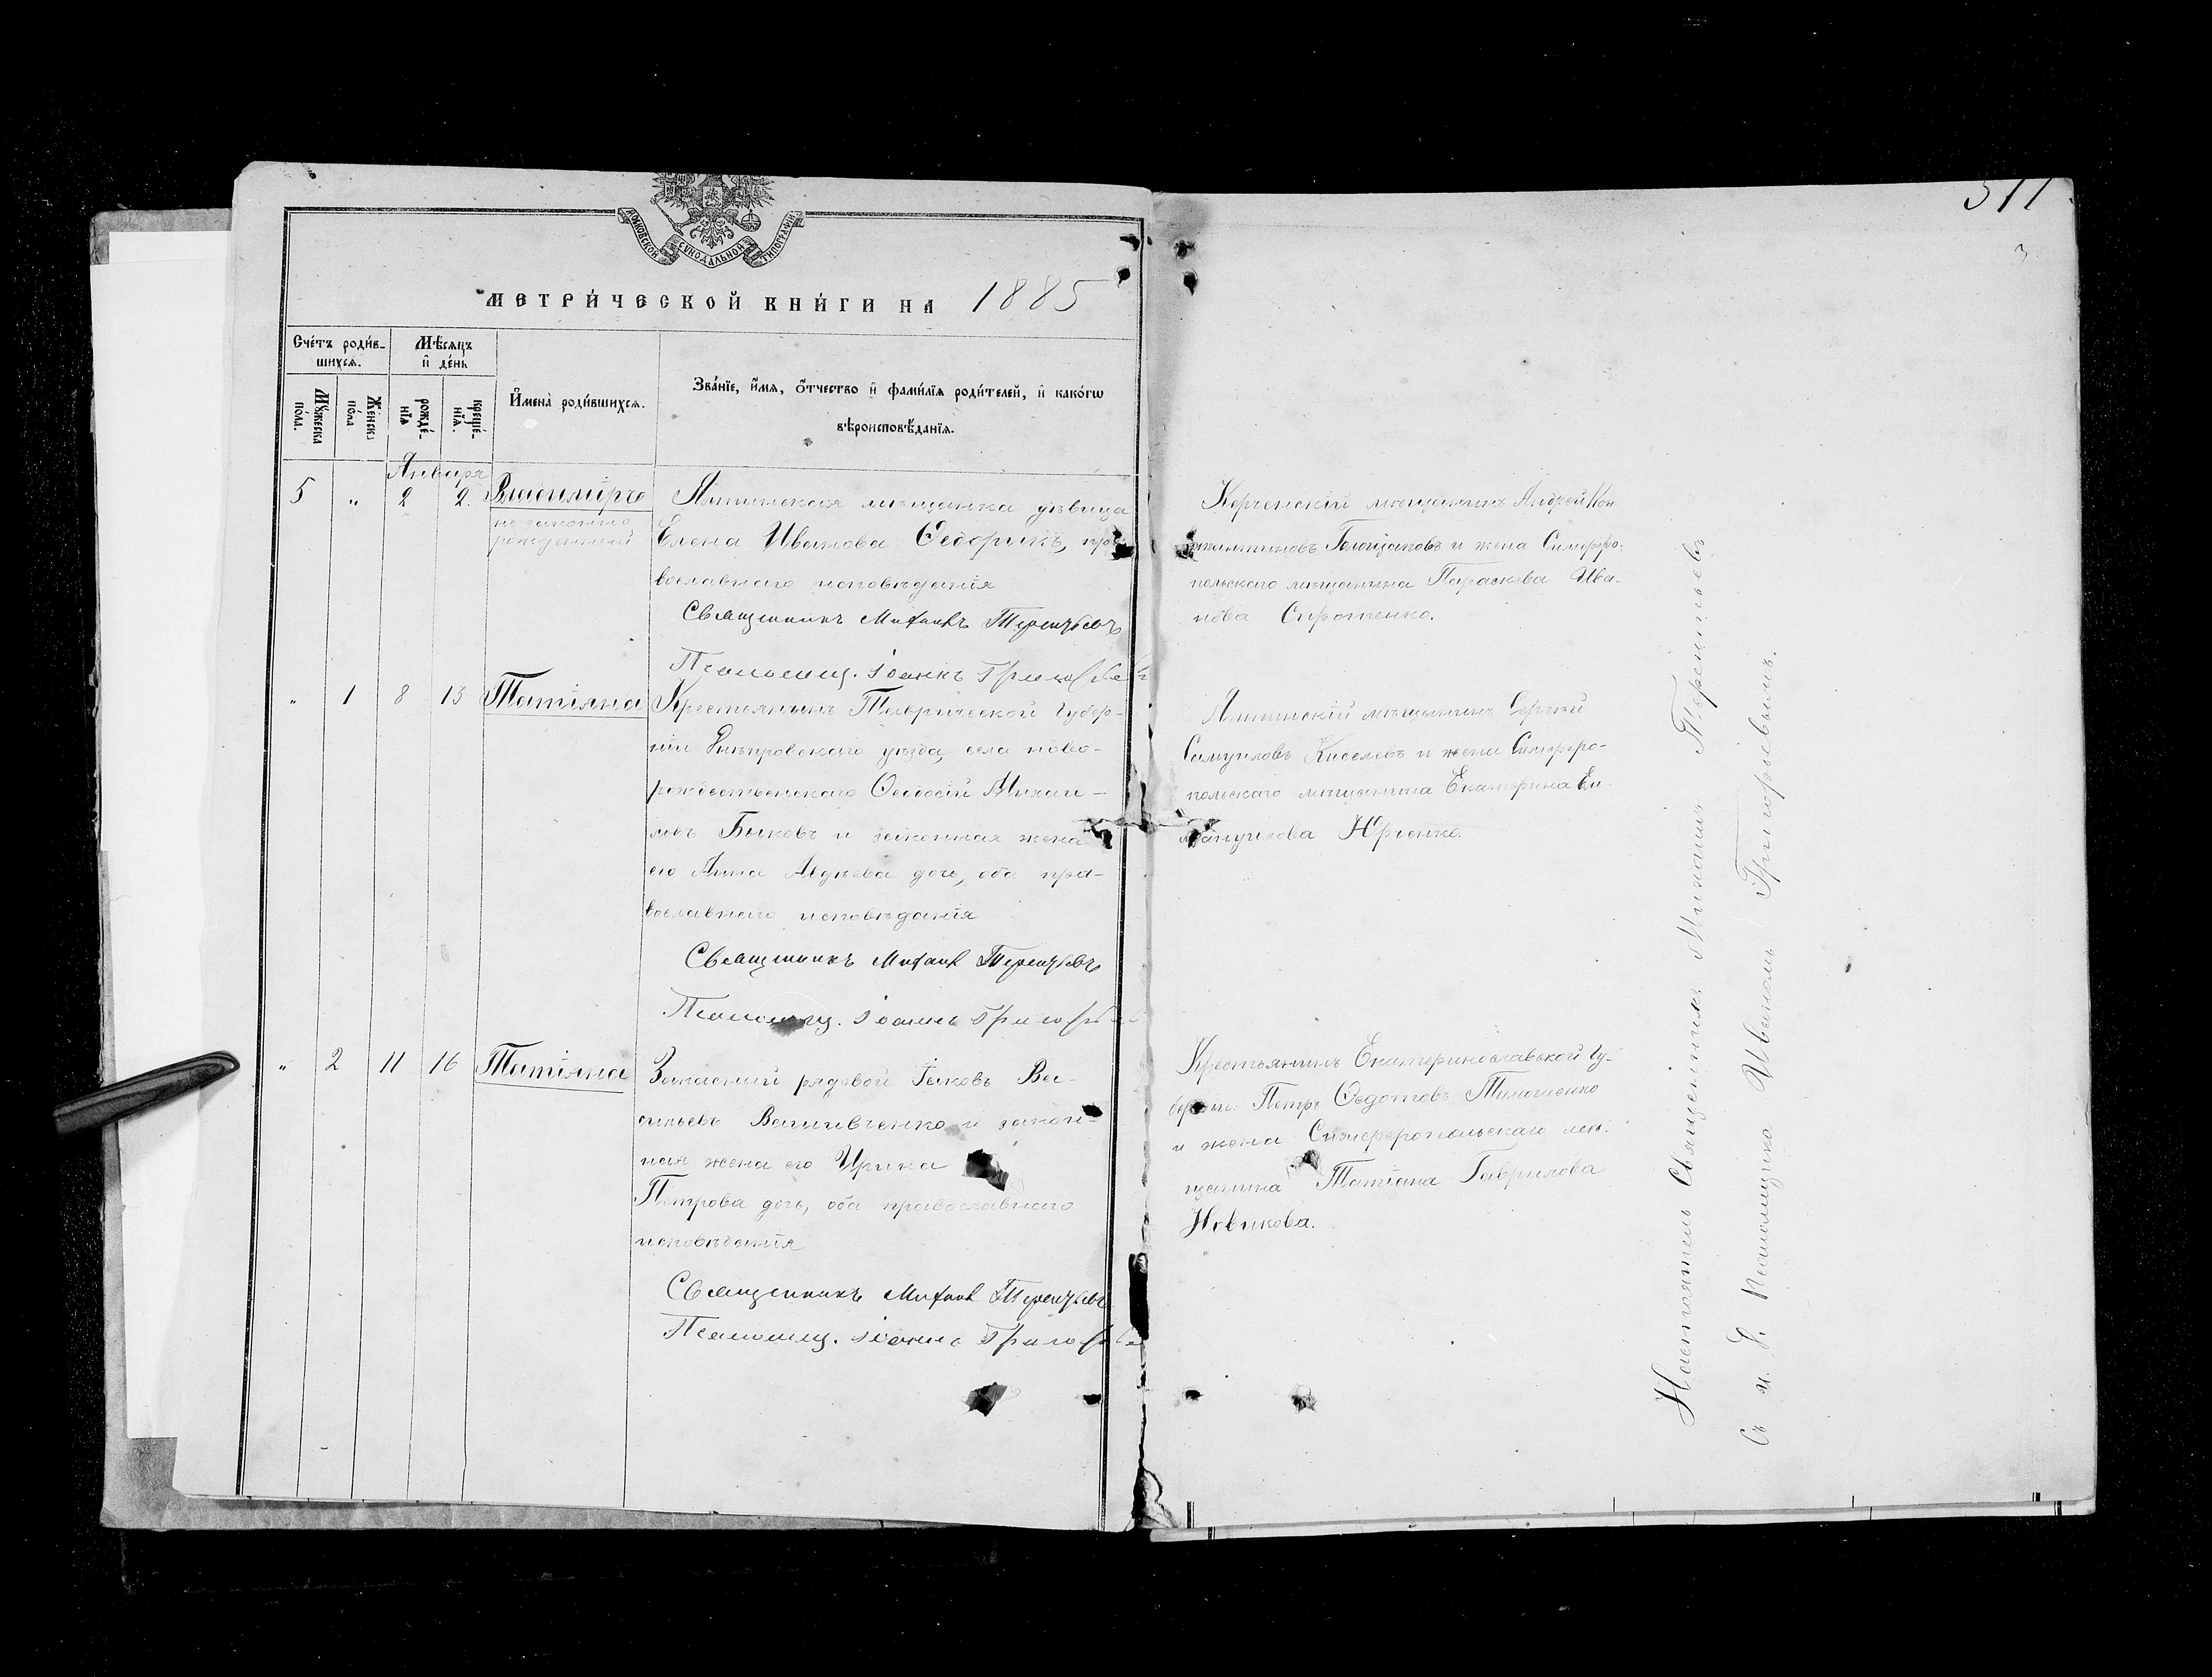 МОСКОВСКОЙ СУНОДАЛЬНОЙ ТИПОГРАФІИ
МЕТРИ́ЧЕСКОЙ КНИ́ГИ НА 1885
Сче́тъ роди́в-
шихсѧ.
Мѣ́сѧцъ
и҆ де́нь
Мꙋ́жеска
по́ла.
Же́нска
по́ла
рожде́-
нїѧ
креще́-
нїѧ.
И҆мена̀ роди́вшихсѧ.
Зва́нїе, и҆́мѧ, ѻ҆́тчество и҆ фами́лїѧ роди́телей, и҆ како́гѡ
вѣроисповѣ́данїѧ.
Января
5 „ 2 2. Владиміръ
не законно
рожденный
Ялтинская мѣщанка дѣвица
Елена Иванова Ѳедорикъ, пра-
вославнаго исповѣданія
Священникъ Михаилъ Терентьевъ
Псаломщ. Іоаннъ Григорьев
„ 1 8 13 Татіяна
Крестьянинъ Таврической Губер-
ніи Днѣпровскаго уѣзда, села ново-
рождественскаго Ѳеодосій Михаи-
ловъ Быковъ и законная жена
его Анна Авдѣева дочь, оба пра-
вославнаго исповѣданія
Священникъ Михаилъ Терентьевъ
Псаломщ. Іоаннъ Григорьев
„ 2 11 16 Татіяна
Запасный рядовой Іяковъ Ва-
сильевъ и закон-
ная жена его Ирина
Петрова дочь, оба православнаго
исповѣданія
Священникъ Михаилъ Терентьевъ
Псаломщ. Іоаннъ Григорьев
511
3
Керченскій мѣщанинъ Андрей Кон-
стантиновъ и жена Симферо-
польскаго мѣщанина Параскева Ива-
нова Сиротенко.
Ялтинскій мѣщанинъ Сергѣй
Самуиловъ Киселевъ и жена Симферо-
польскаго мѣщанина Екатерина Ем-
мануилова Юрченко.
Крестьянинъ Екатеринославской Гу-
берніи Петръ Ѳедотовъ Тимошенко
и жена Симферопольскаго мѣ-
щанина Татіана Гаврилова
Новикова.
Настоятель Священникъ Михаилъ Терентьевъ
Съ и. д. Псаломщика Иваномъ Григорьевымъ.